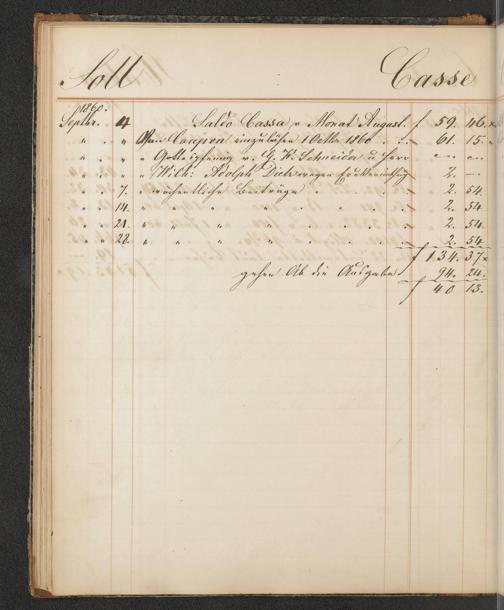 Soll Casse
1860.
Septbr. 4. Saldo Cassa v Monat August f 59. 46. x
" " " Coupon einzulösen 1 Octbr 1860 " 61. 15. "
" " " Gottespfennig v. G. W. Schneider u Herr " — " —
Wilh: Adolph Dietz wegen " 2. —
" " 7. wöchentliche Beiträge " " 2. 54.
" " 14. " " " " " 2. 54
" " 21. " " " " " 2. 54.
" " 28. " " " " " 2. 54.
f 134. 37 x
gehen Ab die Ausgabe 94. 24.
f 40 13.